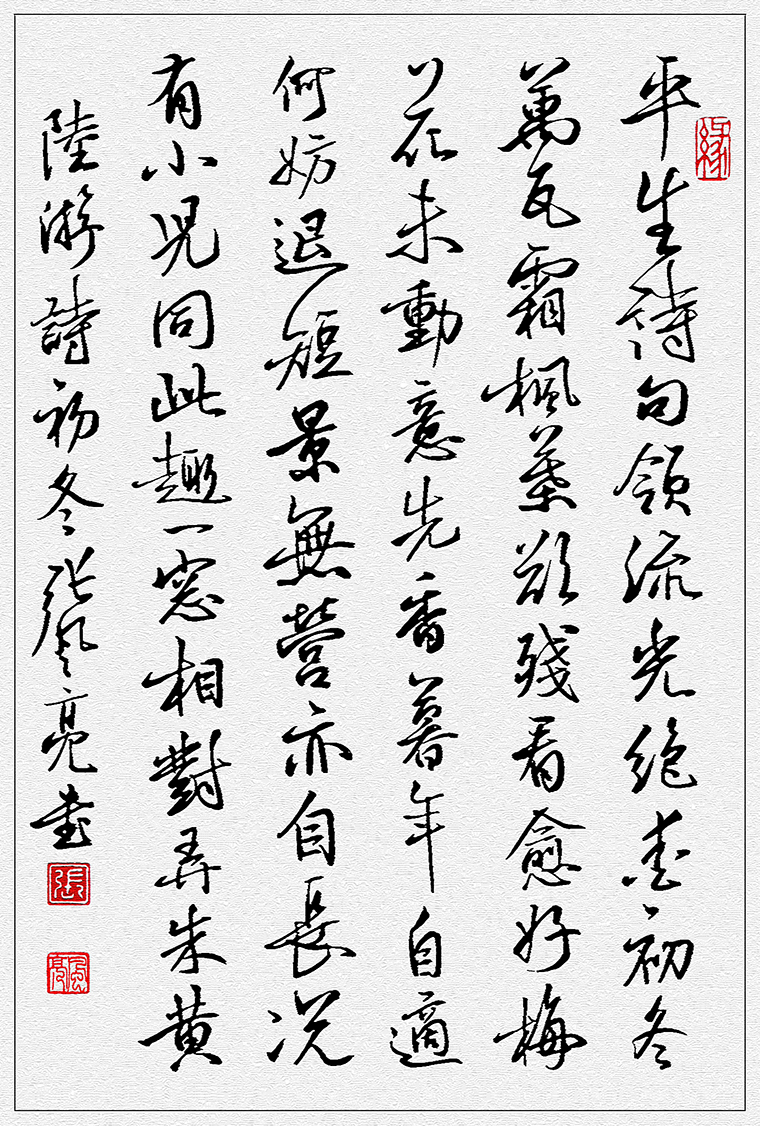 平生詩句領流光絕愛初冬
萬瓦霜楓葉欲殘看愈好梅
花未動意先香暮年自適
何妨退短景無營亦自長況
有小兒同此趣一窗相對弄朱黃
陸游詩初冬張風亮書
緣
張
風亮